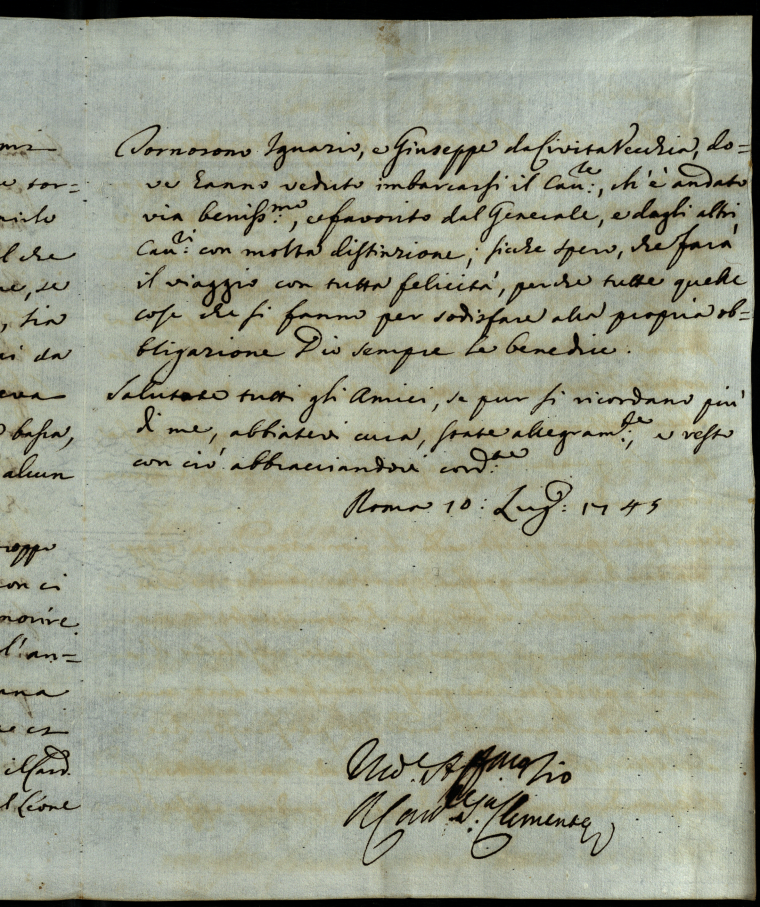 mi
e tor=
l che
ne, se
, sia
i da
eva
bassa,
alcun
troppo
on ci
morire
l'an=
una
e ci
il Card.
l Leone
Tornorono Ignazio, e Giuseppe da Civita Vecchia, do=
ve hanno veduto imbarcarsi il Cau:re, ch'è andato
via beniss:mo, e favorito dal Generale, e dagli altri
Cau:ri con molta distinzione; siche spero, che farà
il viaggio con tutta felicità, perche tutte quelle
cose che si fanno per sodisfare alla propria ob=
bligazione Dio sempre le benedice.
Salutate tutti gli Amici, se pur si ricordano più
di me, abbiatevi cura, state allegram:te, e resto
con ciò abbracciandovi cord:te
Roma 10: Lug:o 1745
Vro Aff Zio
Il Card. Clemente